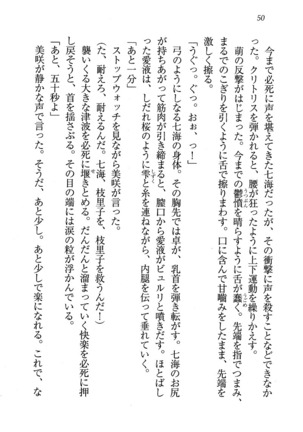 50
今まで必死に声を堪えてきた七海だったが、その衝撃に声を殺すことなどできなか
った。クリトリスを弾かれると、腰が狂ったように上下運動を繰りかえす。
萌の反撃がはじまった。今までの鬱憤を晴らすように舌が蠢く。先端を指でつまみ、
まるでのこぎりを引くように舌で擦りまわす。口に含んで甘噛みをしたまま、先端を
激しく擦る。
「うぐっ。ぐっ。おお、っ！」
弓のようにしなる七海の身体。その胸先では卓が、乳首を弾き転がす。七海のお尻
が持ちあがって筋肉が引き締まると、膣口から愛液がビュルリと噴きだす。ほとばし
った愛液が、しだれ桜のように雫と糸を連ねながら、内腿を伝って垂れていく。
「あと一分」
ストップウォッチを見ながら美咲が言った。
（た、耐えるんだ。耐えるんだ。七海、枝里子を、枝里子を救うんだ）
襲いくる大きな津波を必死に堰きとめる。だんだんと溜まっていく快楽を必死に押
し戻そうと、首を揺さぶる。その目の端には涙の粒が浮かんでいる。
「あと、五十秒よ」
美咲が静かな声で言った。そうだ、あと少し。あと少しで楽になれる。これで、な